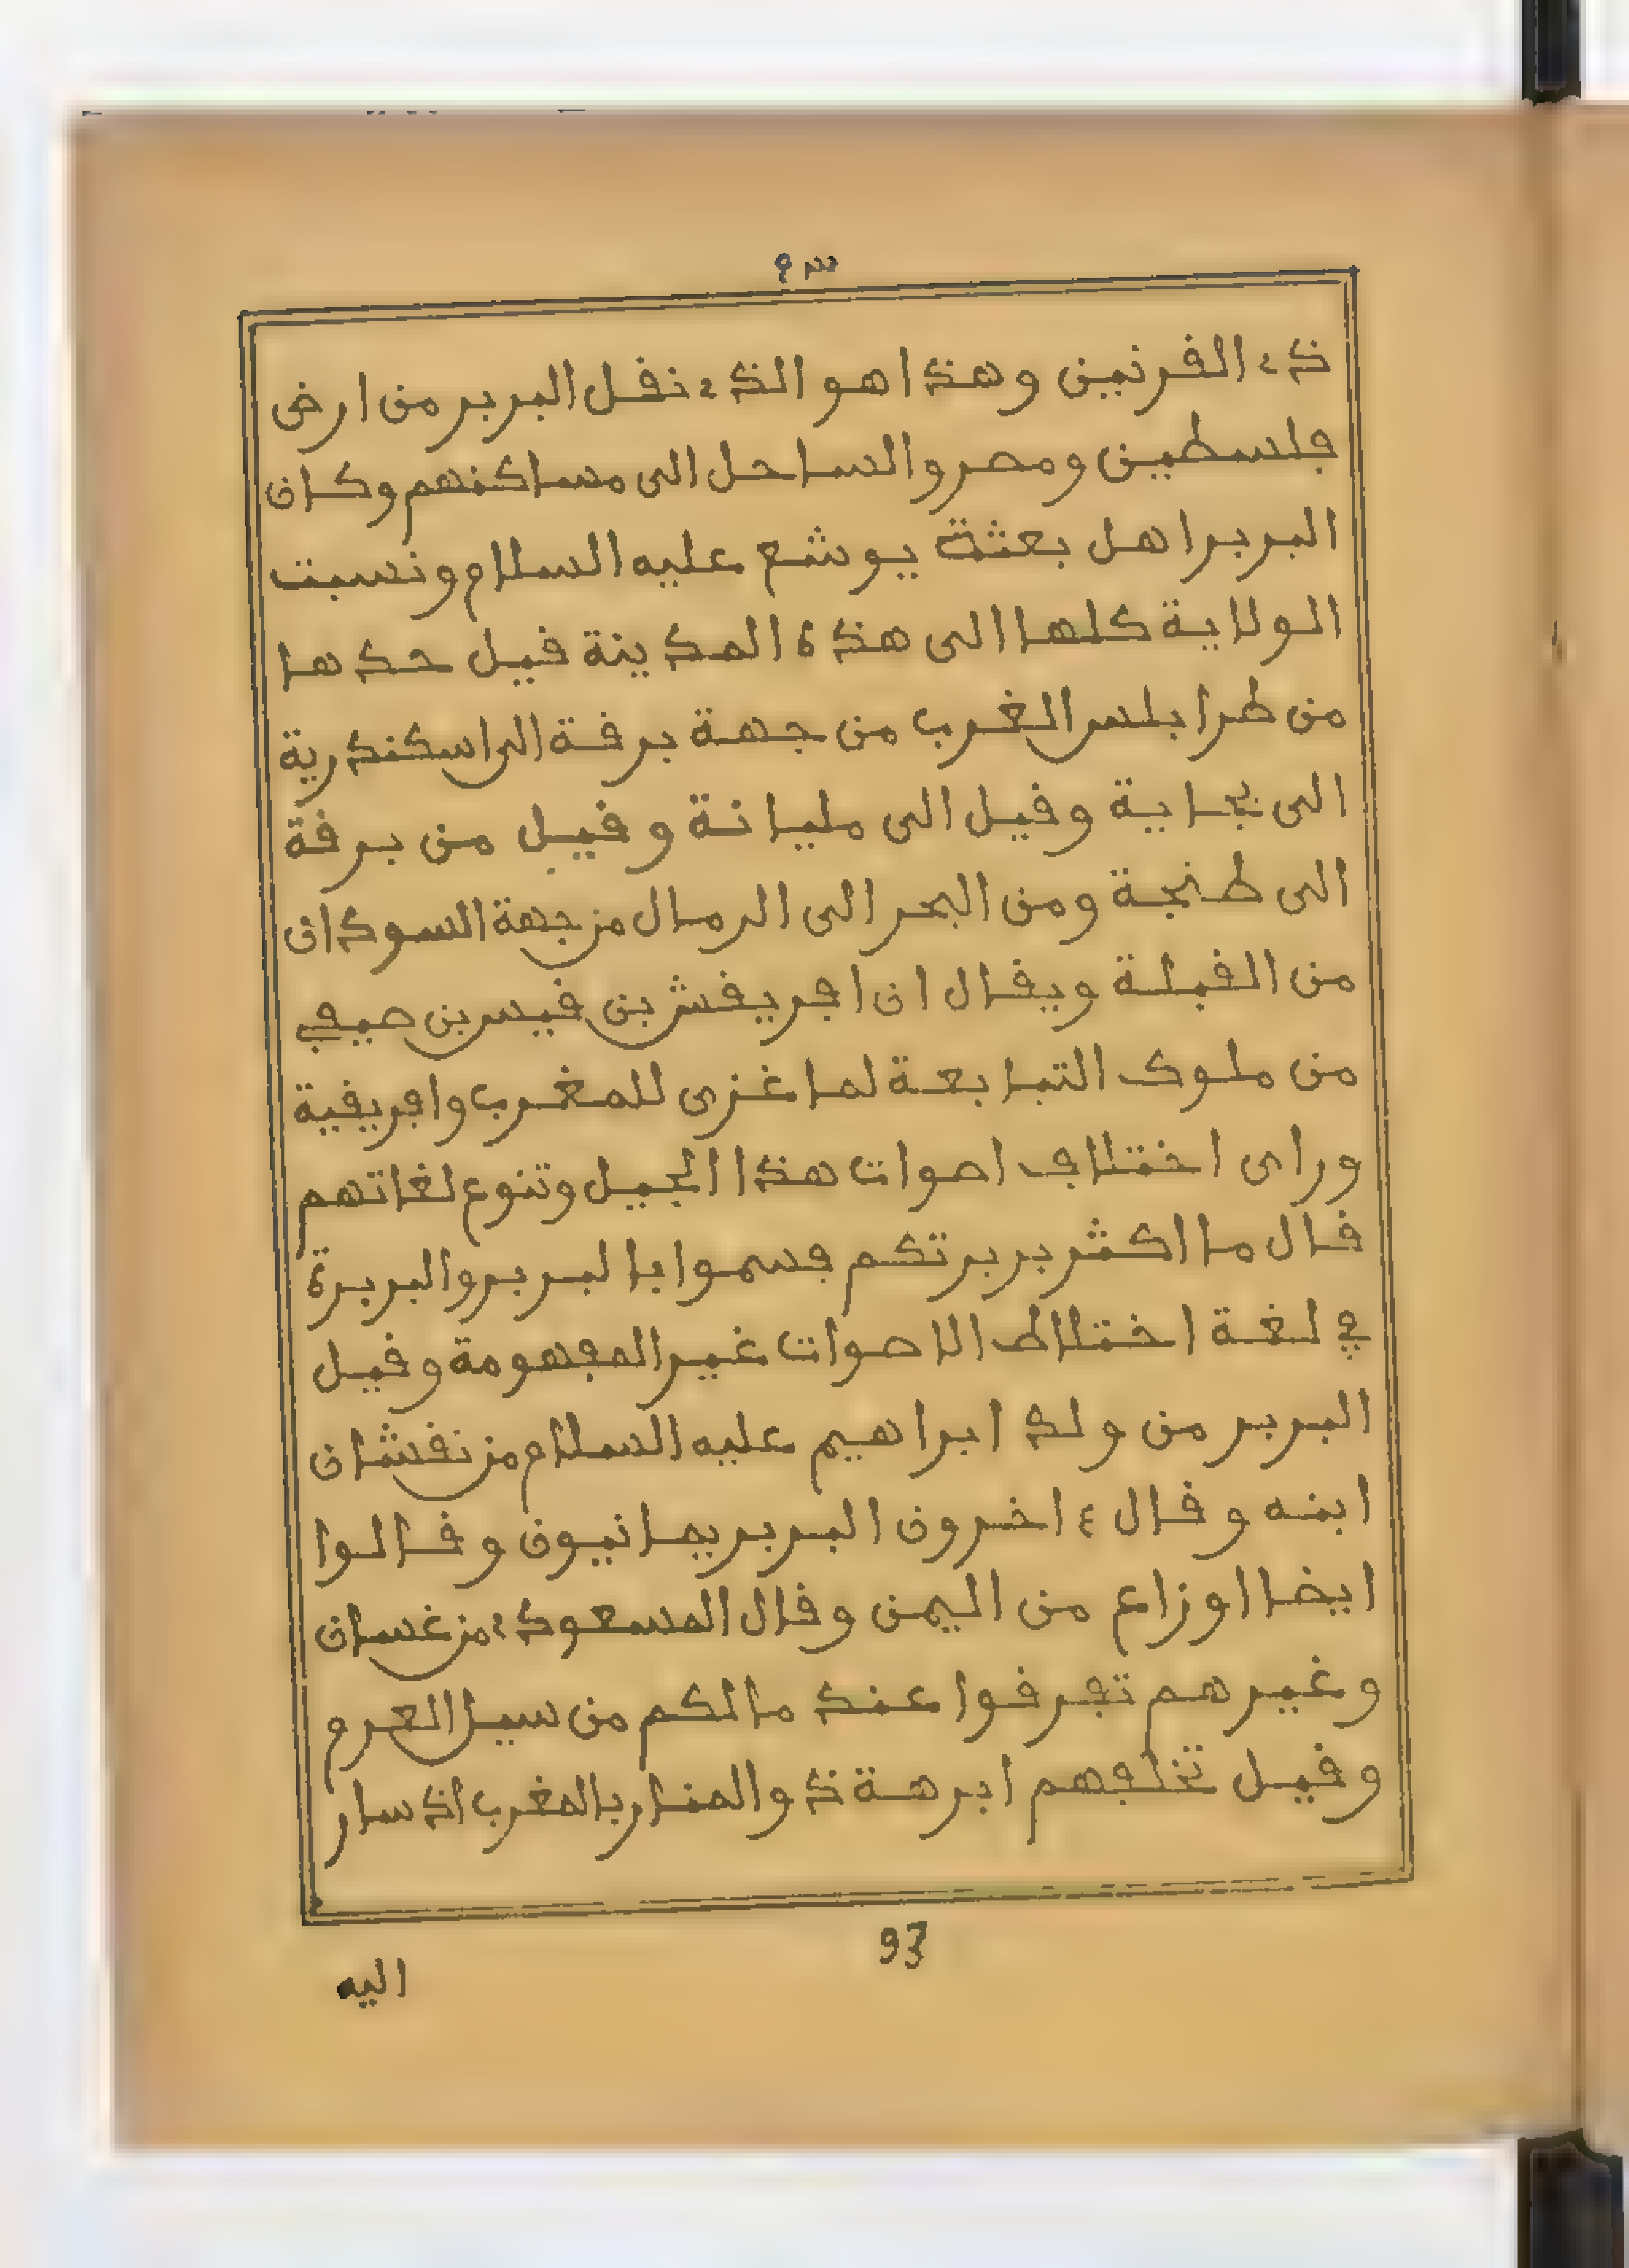 ٩٣
ذي القرنين وهذا هو الذي نقل البربر من ارض
فلسطين ومصر والساحل الى مساكنهم وكان
البربر اهل بعثة يوشع عليه السلام ونسبت
الولاية كلها الى هذه المدينة قيل حدها
من طرابلس الغرب من جهة برقة الى اسكندرية
الى بجاية وقيل الى مليانة وقيل من برقة
الى طنجة ومن البحر الى الرمال من جهة السودان
من القبلة ويقال ان افريقش بن قيس بن صيفي
من ملوك التبابعة لما غزى للمغرب وافريقية
وراى اختلاف اصوات هذا الجيل وتنوع لغاتهم
قال ما اكثر بربرتكم فسموا بالبربر والبربرة
في لغة اختلاط الاصوات غير المفهومة وقيل
البربر من ولد ابراهيم عليه السلام من نقشان
ابنه وقال ءاخرون البربر يمانيون وقالوا
ايضا اوزاع من اليمن وقال المسعودي من غسان
وغيرهم تفرقوا عند مالكم من سيل العرم
وقيل تخلفهم ابرهة ذو المنار بالمغرب اذ سار
93
اليه